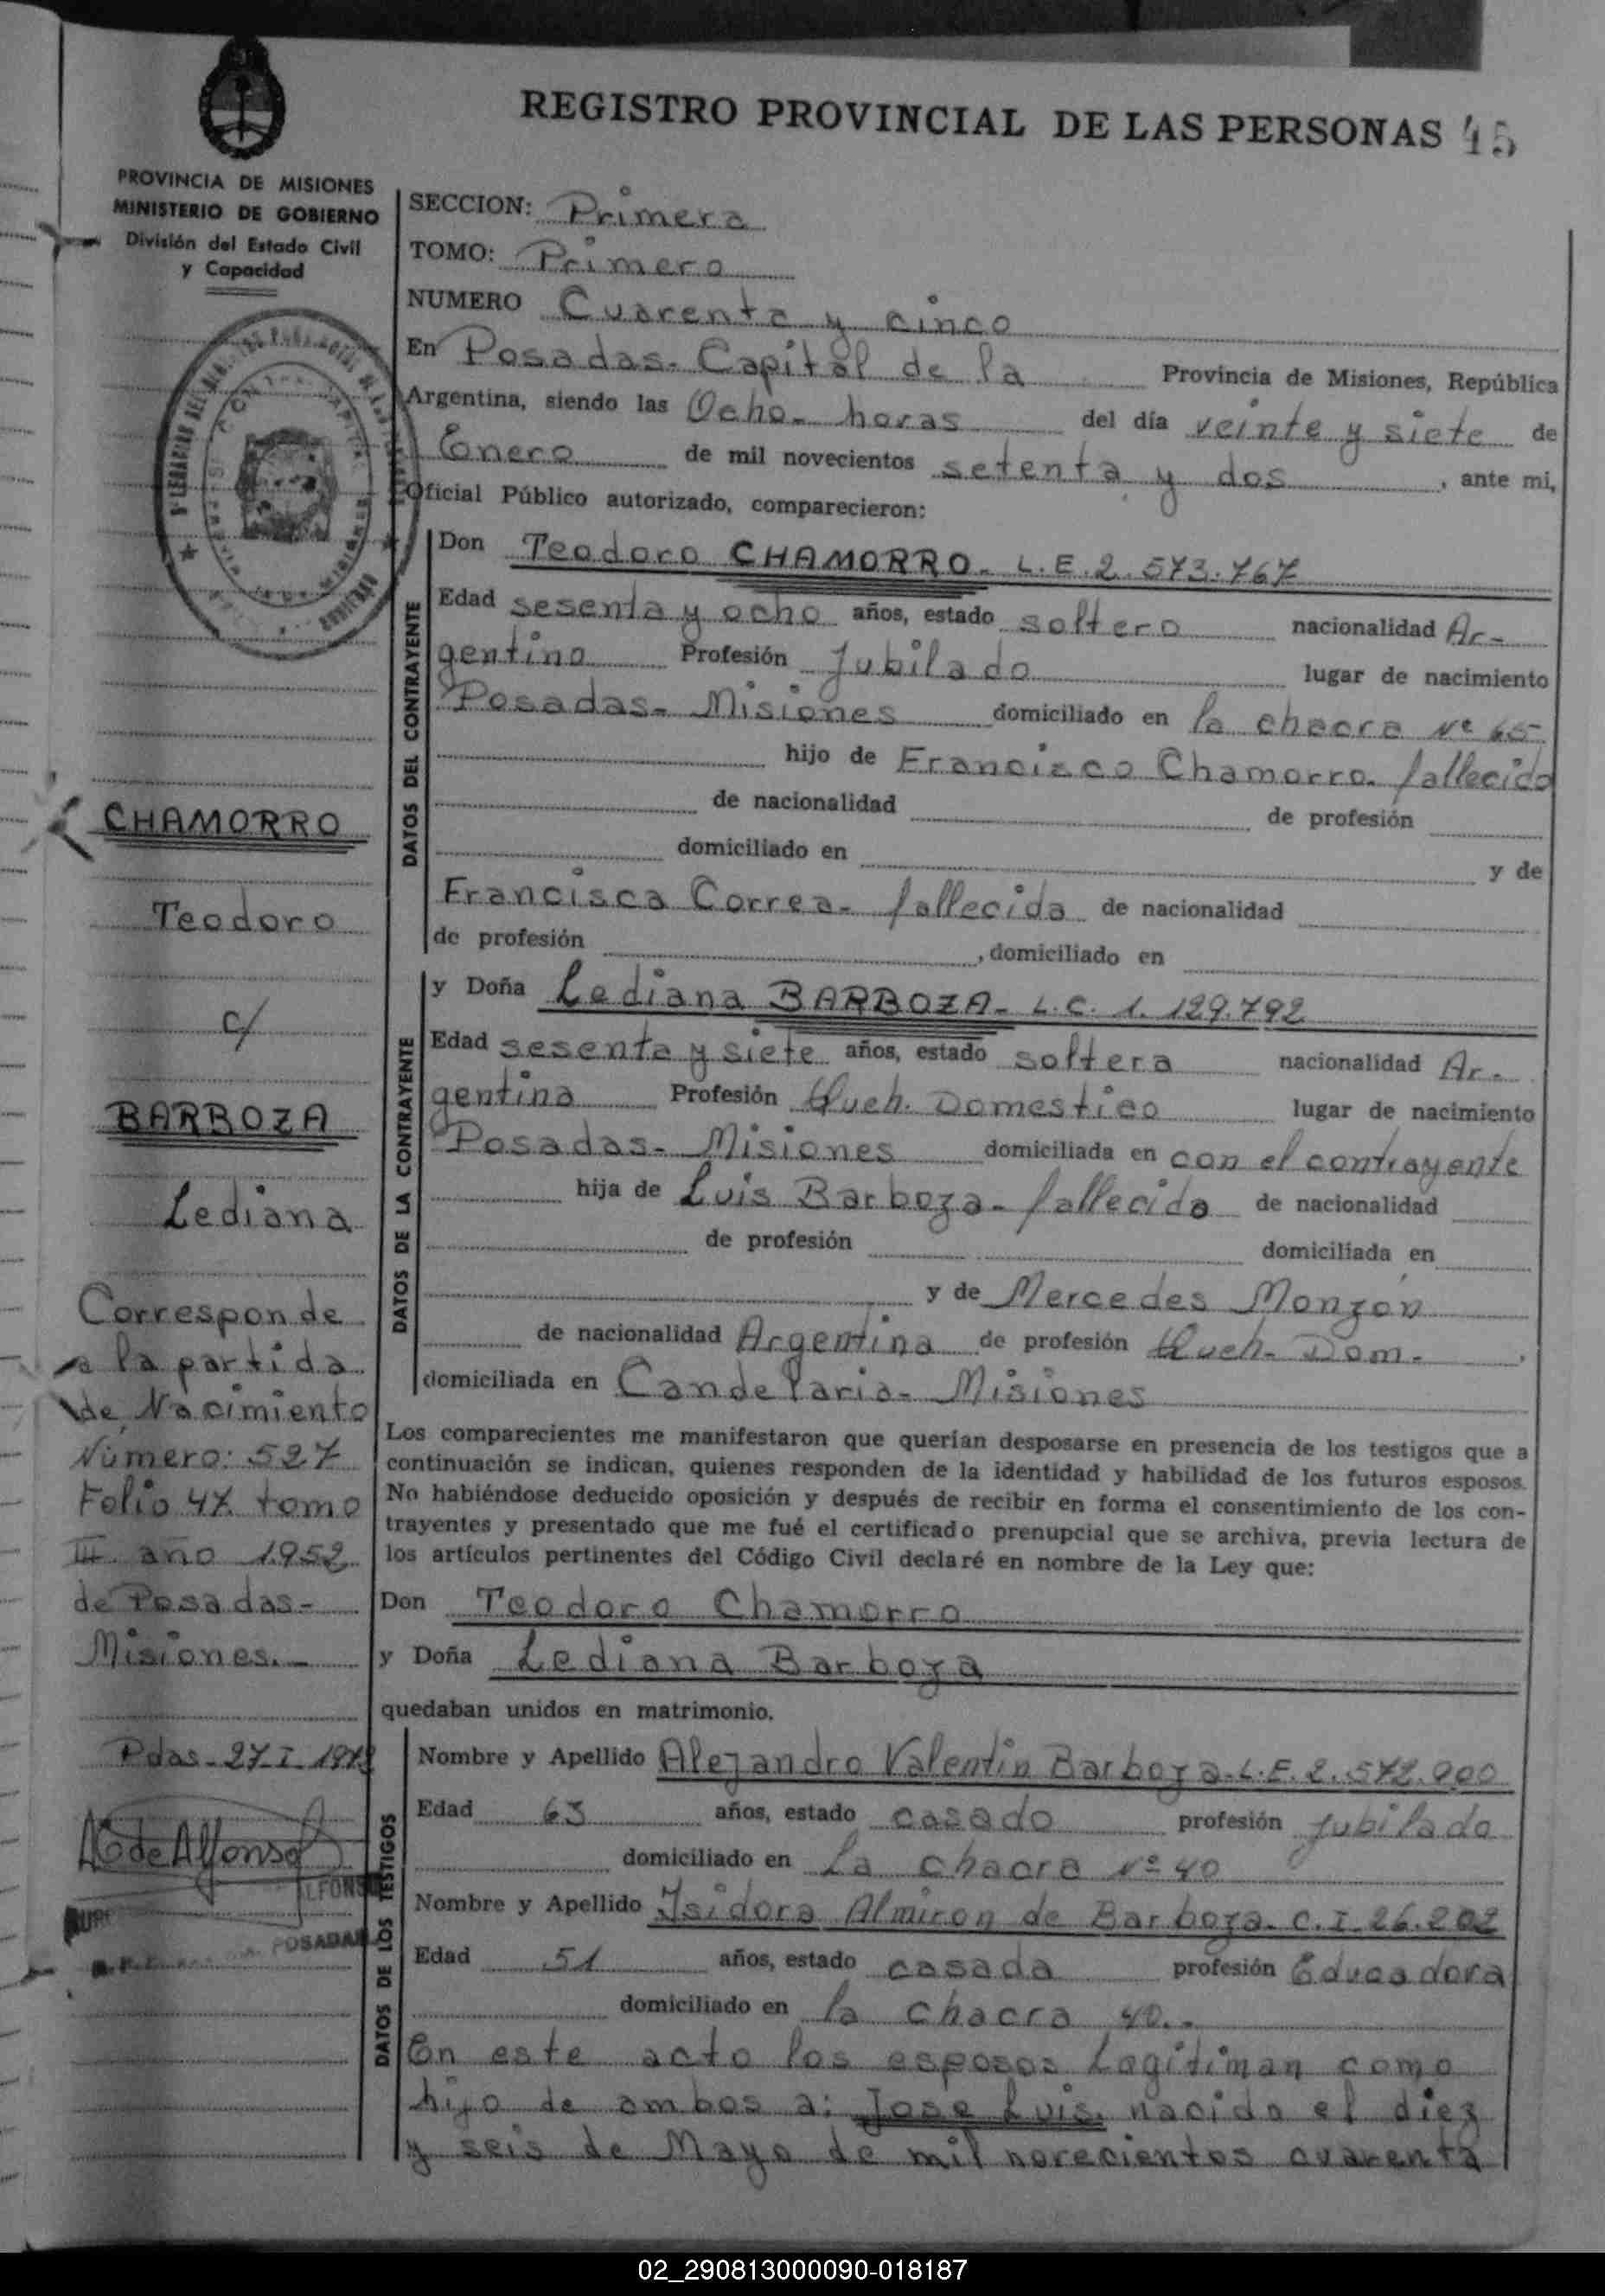 REGISTRO PROVINCIAL DE LAS PERSONAS 45
PROVINCIA DE MISIONES
MINISTERIO DE GOBIERNO
División del Estado Civil
y Capacidad
SECCION: Primera
TOMO: Primero
NUMERO Cuarenta y cinco
En Posadas- Capital de la Provincia de Misiones, República
Argentina, siendo las Ocho- horas del día veinte y siete de
Enero de mil novecientos setenta y dos, ante mi,
Oficial Público autorizado, comparecieron:
DATOS DEL CONTRAYENTE
Don Teodoro CHAMORRO- L.E. 2.573.767
Edad sesenta y ocho años, estado soltero nacionalidad Ar-
gentino Profesión Jubilado lugar de nacimiento
Posadas- Misiones domiciliado en la chacra Nº 65-
hijo de Francisco Chamorro- fallecido
de nacionalidad de profesión
domiciliado en y de
Francisca Correa- fallecida de nacionalidad
de profesión , domiciliado en
DATOS DE LA CONTRAYENTE
y Doña Lediana BARBOZA- L.C. 1.129.792
Edad sesenta y siete años, estado soltera nacionalidad Ar-
gentina Profesión Queh. Domestico lugar de nacimiento
Posadas- Misiones domiciliada en con el contrayente
hija de Luis Barboza- fallecido de nacionalidad
de profesión domiciliada en
y de Mercedes Monzón
de nacionalidad Argentina de profesión Queh- Dom-,
domiciliada en Candelaria- Misiones
Los comparecientes me manifestaron que querían desposarse en presencia de los testigos que a
continuación se indican, quienes responden de la identidad y habilidad de los futuros esposos.
No habiéndose deducido oposición y después de recibir en forma el consentimiento de los con-
trayentes y presentado que me fué el certificado prenupcial que se archiva, previa lectura de
los artículos pertinentes del Código Civil declaré en nombre de la Ley que:
Don Teodoro Chamorro
y Doña Lediana Barboza
quedaban unidos en matrimonio.
DATOS DE LOS TESTIGOS
Nombre y Apellido Alejandro Valentin Barboza- L.E. 2.572.900
Edad 63 años, estado casado profesión Jubilado
domiciliado en La chacra Nº 40
Nombre y Apellido Isidora Almiron de Barboza- C.I. 26.202
Edad 51 años, estado casada profesión Educadora
domiciliado en la chacra 40.-
En este acto los esposos Legitiman como
hijo de ambos a: Jose Luis, nacido el diez
y seis de Mayo de mil novecientos cuarenta
CHAMORRO
Teodoro
c/
BARBOZA
Lediana
Corresponde
a la partida
de Nacimiento
Número: 527
Folio 47. tomo
III año 1952
de Posadas-
Misiones.-
Pdas- 27-I-
de Alfonso
POSADAS
02_290813000090-018187